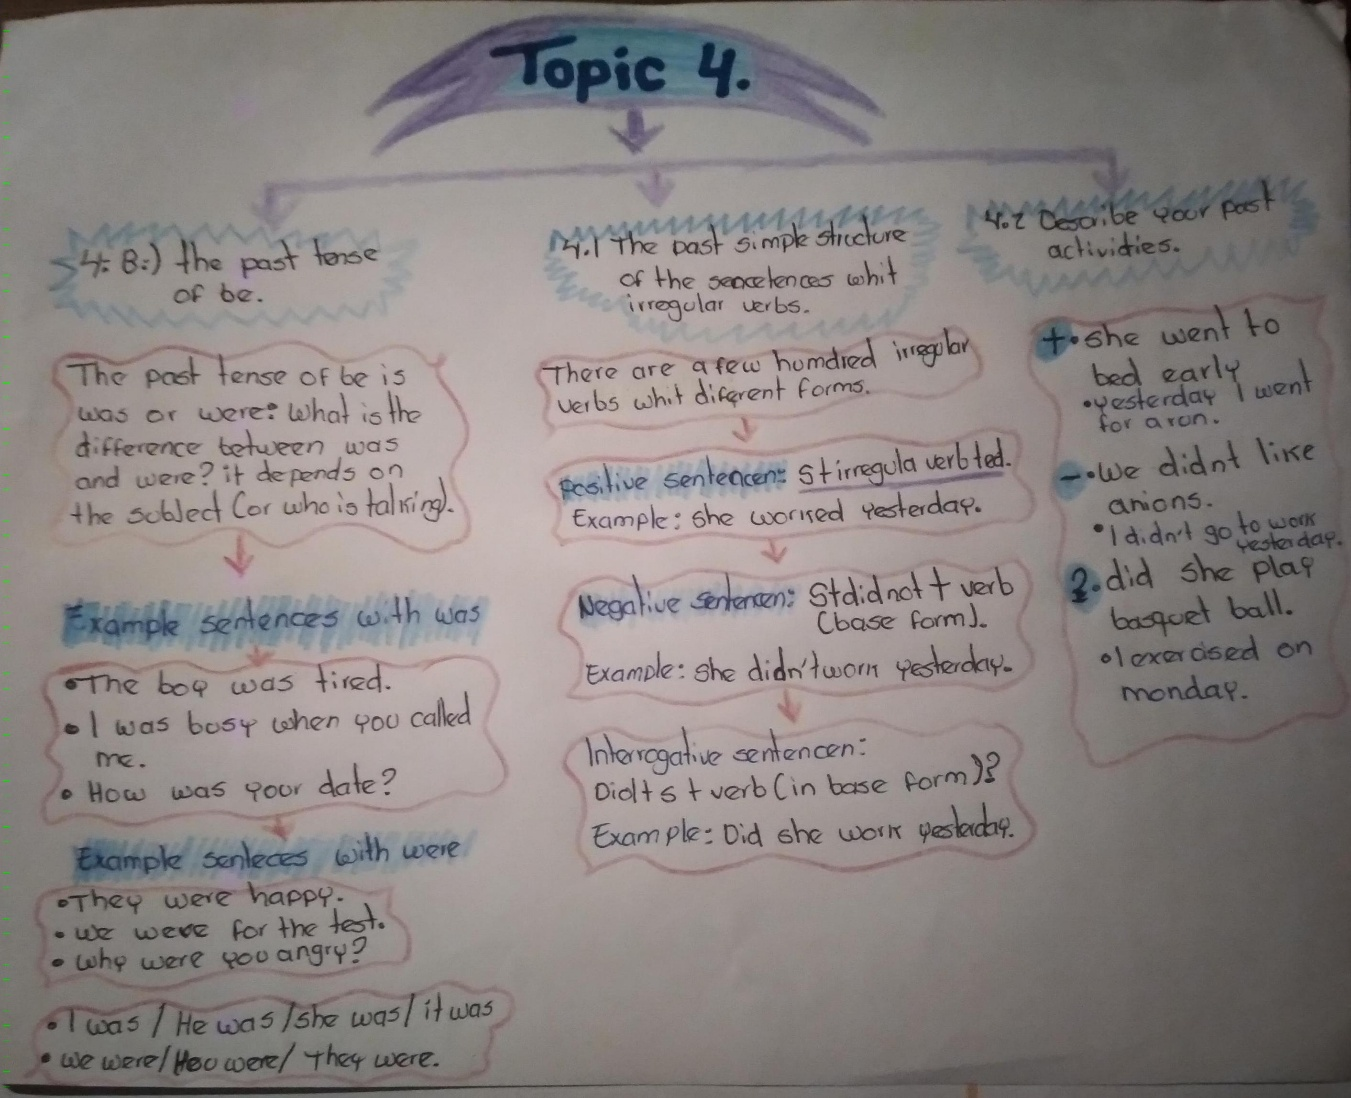 Topic 4.
4: B:) the past tense
of be.
The past tense of be is
was or were: What is the
difference between was
and were? it depends on
the subject (or who is talking).
Example sentences with was
•The boy was tired.
• I was busy when you called
me.
• How was your date?
Example senteces with were
•They were happy.
• we were for the test.
• why were you angry?
• I was / He was /she was/ it was
• we were/ were/ They were.
4.1 The past simple structure
of the whit
irregular verbs.
There are a few humdred irregular
verbs whit diferent forms.
Positive sentencen: St irregula verb ted.
Example: she worked yesterday.
Negative sentencen: St did not + verb
(base form).
Example: she didn't work yesterday.
Interrogative sentencen:
Did+ s + verb (in base form)?
Example: Did she work yesterday.
4.2 Describe your past
activities.
+•she went to
bed early
•yesterday I went
for a run.
-•we didnt like
anions.
•I didn't go to work
yesterday.
?•did she play
basquet ball.
•I exercised on
monday.